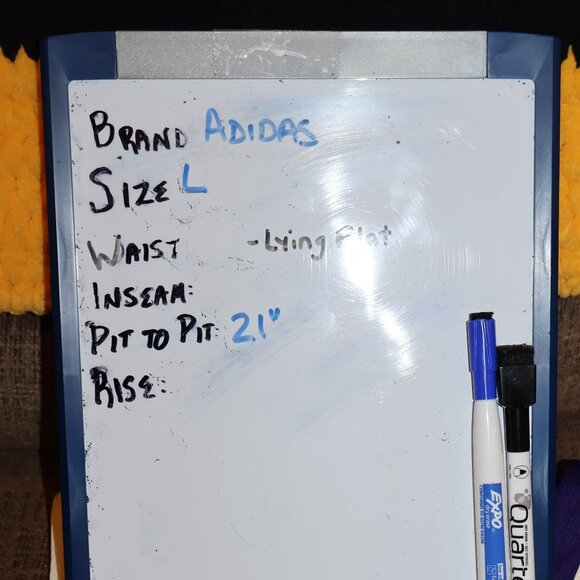 BRAND ADIDAS
SIZE L
WAIST - Lying Flat
INSEAM:
PIT TO PIT 21"
RISE:
EXPO
Quart